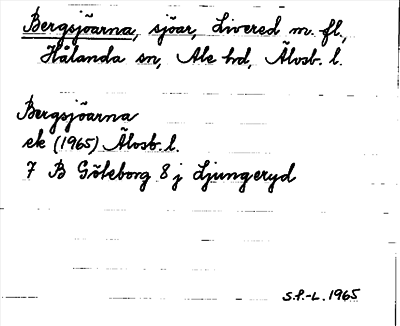 Bergsjöarna, sjöar, Livered m. fl.,
Hålanda sn, Ale hd, Älvsb. l.
Bergsjöarna
ek (1965) Älvsb. l.
7 B Göteborg 8 j Ljungeryd
S.F.-L. 1965